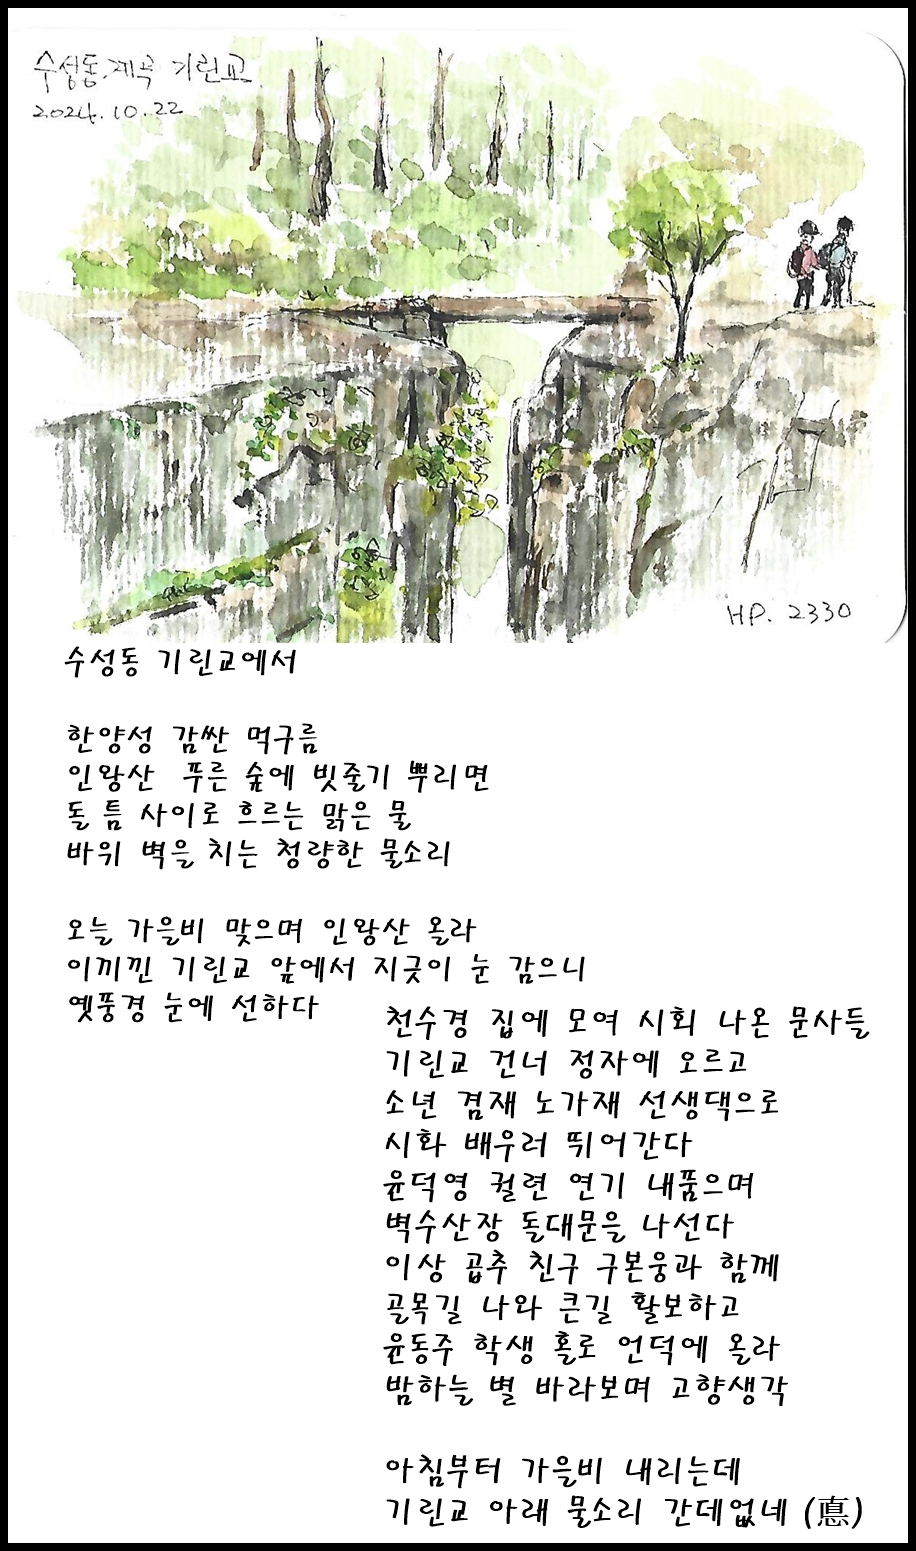 수성동 계곡 기린교
2024.10.22
HP. 2330
수성동 기린교에서
한양성 감싼 먹구름
인왕산 푸른 숲에 빗줄기 뿌리면
돌 틈 사이로 흐르는 맑은 물
바위 벽을 치는 청량한 물소리
오늘 가을비 맞으며 인왕산 올라
이끼낀 기린교 앞에서 지긋이 눈 감으니
옛풍경 눈에 선하다
천수경 집에 모여 시회 나온 문사들
기린교 건너 정자에 오르고
소년 겸재 노가재 선생댁으로
시화 배우러 뛰어간다
윤덕영 궐련 연기 내품으며
벽수산장 돌대문을 나선다
이상 곱추 친구 구본웅과 함께
골목길 나와 큰길 활보하고
윤동주 학생 홀로 언덕에 올라
밤하늘 별 바라보며 고향생각
아침부터 가을비 내리는데
기린교 아래 물소리 간데없네 (悳)